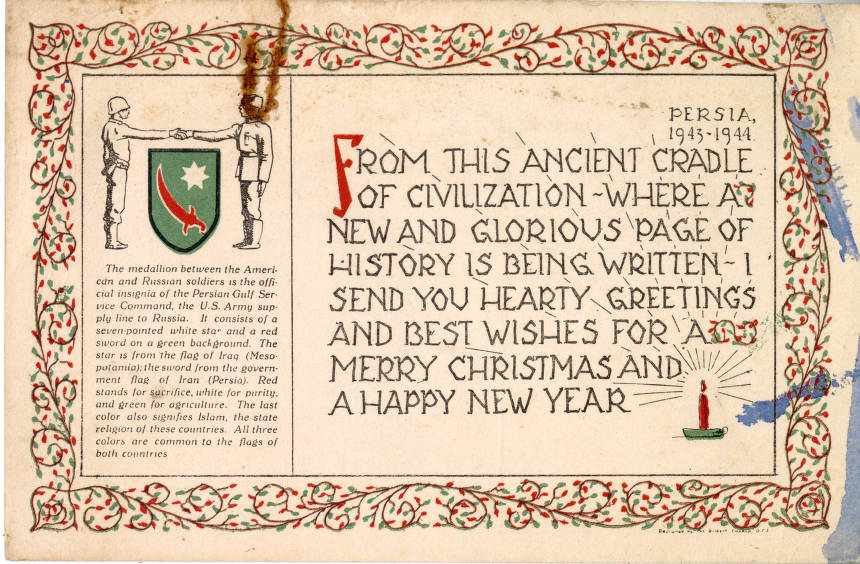 The medallion between the Ameri-
can and Russian soldiers is the offi-
cial insignia of the Persian Gulf Ser-
vice Command, the U.S. Army sup-
ply line to Russia. It consists of a
seven-pointed white star and a red
sword on a green background. The
star is from the flag of Iraq (Meso-
potamia); the sword from the govern-
ment flag of Iran (Persia). Red
stands for sacrifice, white for purity,
and green for agriculture. The last
color also signifies Islam, the state
religion of these countries. All three
colors are common to the flags of
both countries
PERSIA,
1943-1944
FROM THIS ANCIENT CRADLE
OF CIVILIZATION ~ WHERE A
NEW AND GLORIOUS PAGE OF
HISTORY IS BEING WRITTEN ~ I
SEND YOU HEARTY GREETINGS
AND BEST WISHES FOR A
MERRY CHRISTMAS AND
A HAPPY NEW YEAR